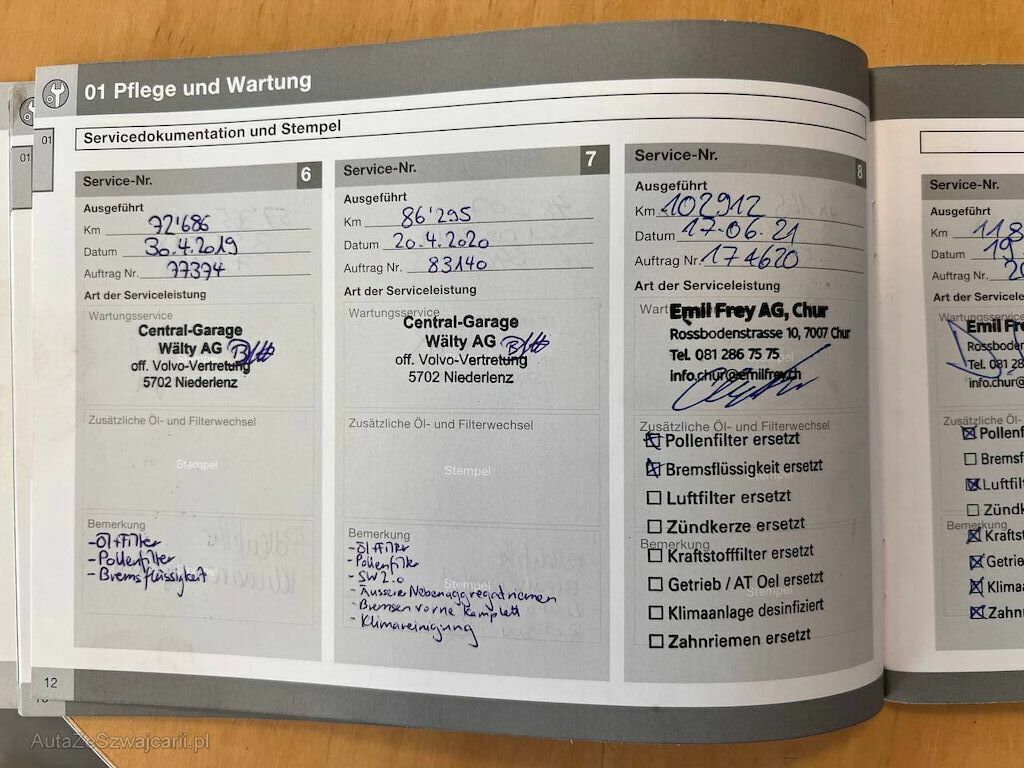 01 Pflege und Wartung
01
01
Servicedokumentation und Stempel
Service-Nr. 6
Ausgeführt
Km 72'686
Datum 30.4.2019
Auftrag Nr. 77374
Art der Serviceleistung
Wartungsservice
Central-Garage
Wälty AG
off. Volvo-Vertretung
5702 Niederlenz
Zusätzliche Öl- und Filterwechsel
Stempel
Bemerkung
- Öl+Filter
- Pollenfilter
- Bremsflüssigkeit
Service-Nr. 7
Ausgeführt
Km 86'295
Datum 20.4.2020
Auftrag Nr. 83140
Art der Serviceleistung
Wartungsservice
Central-Garage
Wälty AG
off. Volvo-Vertretung
5702 Niederlenz
Zusätzliche Öl- und Filterwechsel
Stempel
Bemerkung
- Öl+Filter
- Pollenfilter
- SW 2.0
- Äussere Nebenaggregatriemen
- Bremsen vorne komplett
- Klimareinigung
Stempel
Service-Nr. 8
Ausgeführt
Km 102912
Datum 17.06.21
Auftrag Nr. 174620
Art der Serviceleistung
Emil Frey AG, Chur
Rossbodenstrasse 10, 7007 Chur
Tel. 081 286 75 75
info.chur@emilfrey.ch
Zusätzliche Öl- und Filterwechsel
Pollenfilter ersetzt
Bremsflüssigkeit ersetzt
Luftfilter ersetzt
Zündkerze ersetzt
Bemerkung
Kraftstofffilter ersetzt
Getrieb / AT Oel ersetzt
Klimaanlage desinfiziert
Zahnriemen ersetzt
Service-Nr.
Ausgeführt
Km 118
Datum 19
Auftrag Nr. 20
Art der Serviceleis
Emil Fre
Rossboden
Tel. 081 28
info.chur@
Zusätzliche Öl-
Pollenf
Bremsf
Luftfil
Zündk
Bemerkung
Kraftst
Getrie
Klima
Zahnr
12
AutaZeSzwajcarii.pl